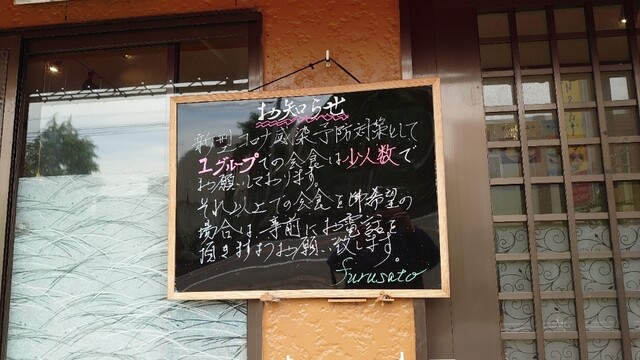 お知らせ
新型コロナ感染予防対策として
1グループでの会食は少人数で
お願いしております。
それ以上での会食を御希望の
場合は、事前にお電話を
頂きますようお願い致します。
furusato